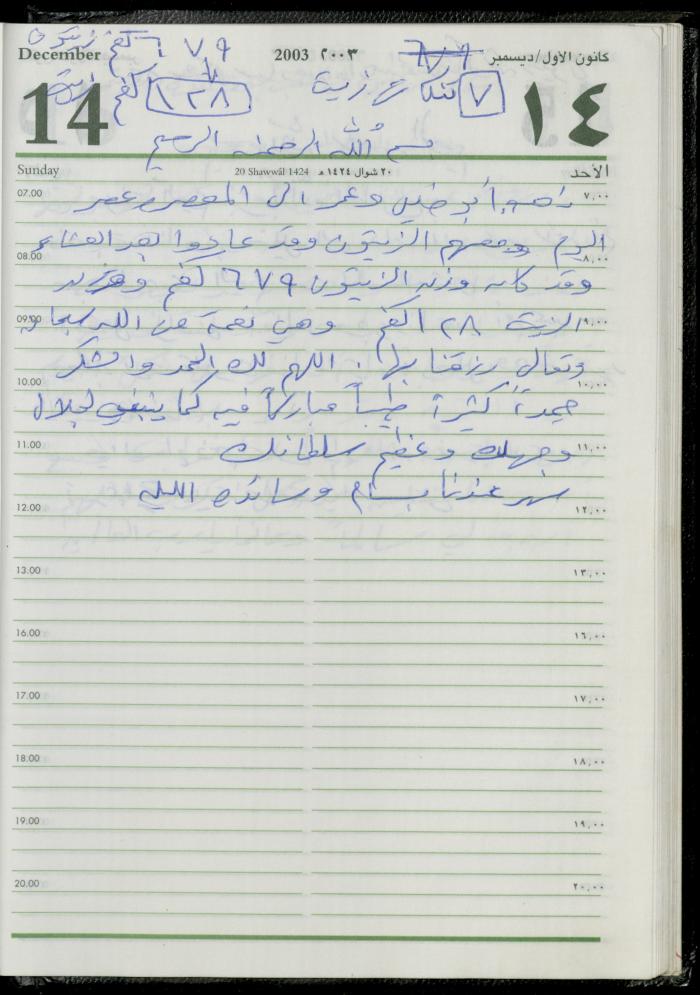 ٦٧٩ كغم زيتون
December 2003 ٢٠٠٣ كانون الاول/ديسمبر
14 ١٢٨ كغم زيت ٧ تنكات زيت ١٤
بسم الله الرحمن الرحيم
Sunday 20 Shawwāl 1424 ٢٠ شوال ١٤٢٤ هـ الأحد
07.00 ذهب أبو خليل وعمر الى المعصرة عصر ٧,٠٠
اليوم ومعهم الزيتون وقد عادوا بعد العشاء
08.00 ٨,٠٠
وقد كان وزن الزيتون ٦٧٩ كغم ووزن
09.00 الزيت ١٢٨ كغم وهي نعمة من الله سبحانه ٩,٠٠
وتعالى رزقنا بها. اللهم لك الحمد والشكر
10.00 ١٠,٠٠
حمداً كثيراً طيباً مباركاً فيه كما ينبغي لجلال
11.00 وجهك وعظيم سلطانك ١١,٠٠
سهر عندنا بسام الليلة
12.00 ١٢,٠٠
13.00 ١٣,٠٠
16.00 ١٦,٠٠
17.00 ١٧,٠٠
18.00 ١٨,٠٠
19.00 ١٩,٠٠
20.00 ٢٠,٠٠